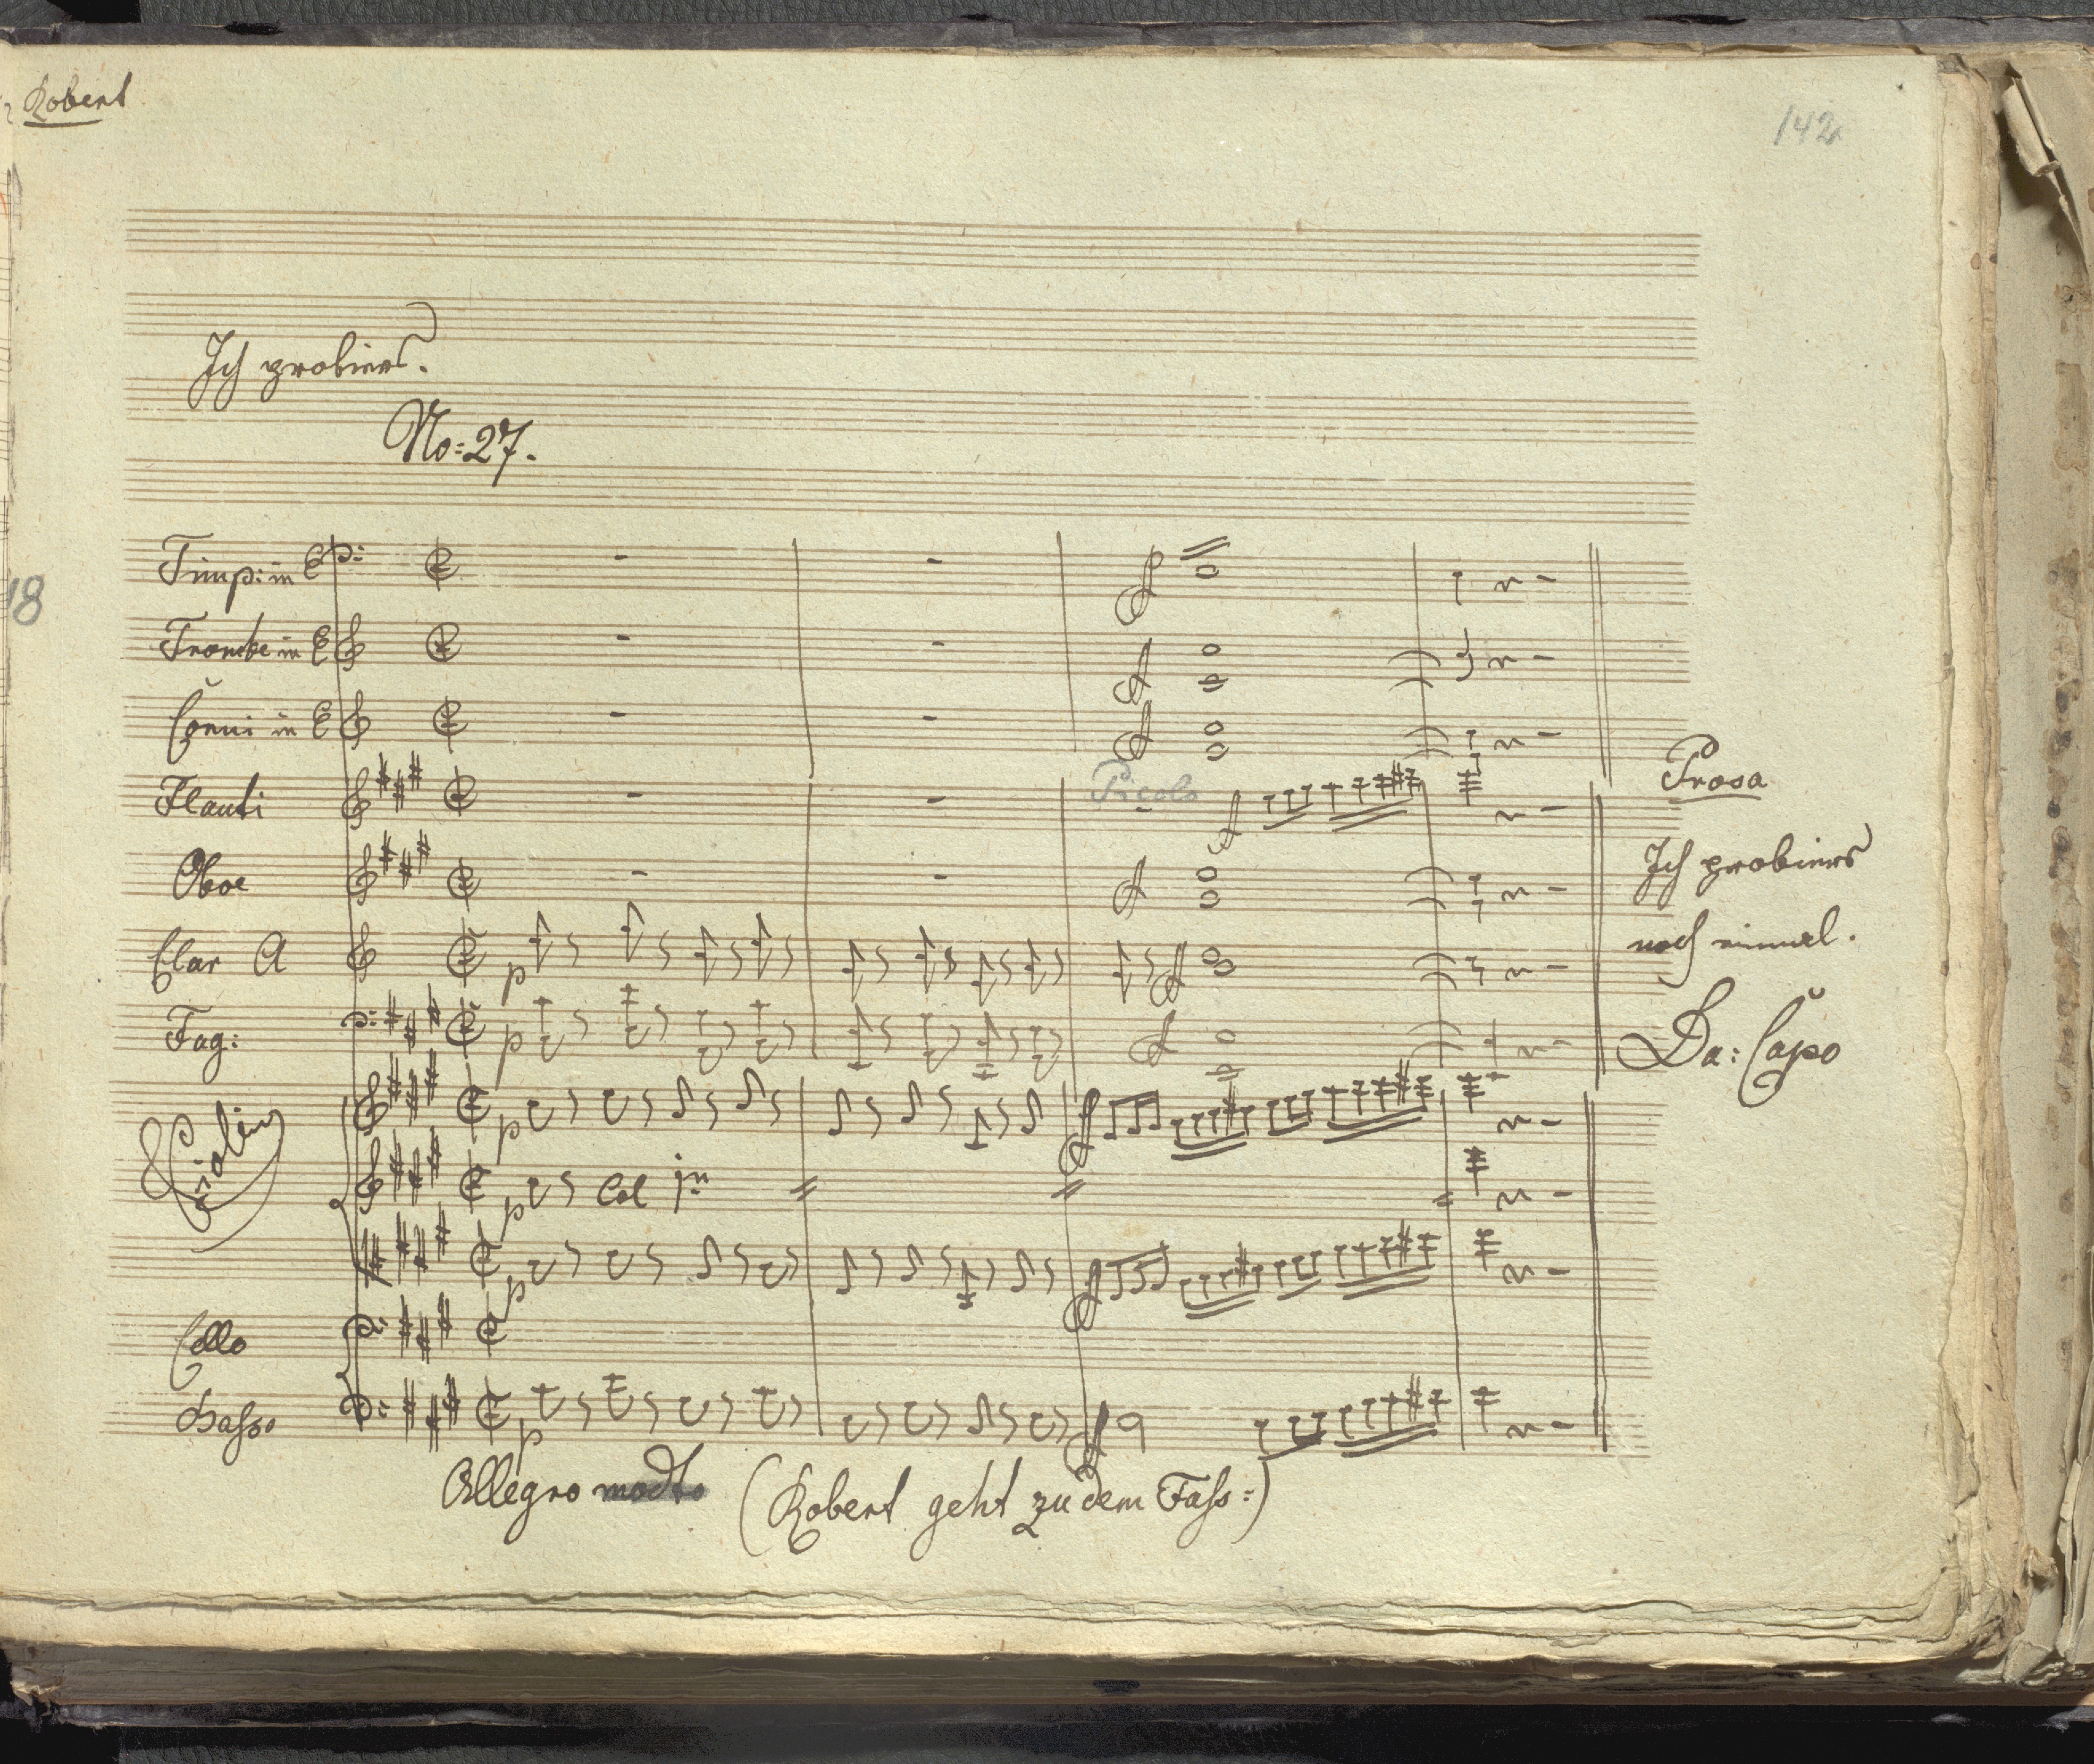 Robert
142
Ich probiers.
No: 27.
18
Timp: in E
Trombe in E
Corni in E
Flauti
Picolo
Prosa
Oboe
Ich probiers
Clar A
p
noch einmal.
Fag:
p
Da: Capo
Violin
p
p Col 1mo
p
Cello
Basso
p
Allegro modto (Robert geht zu dem Fass:)